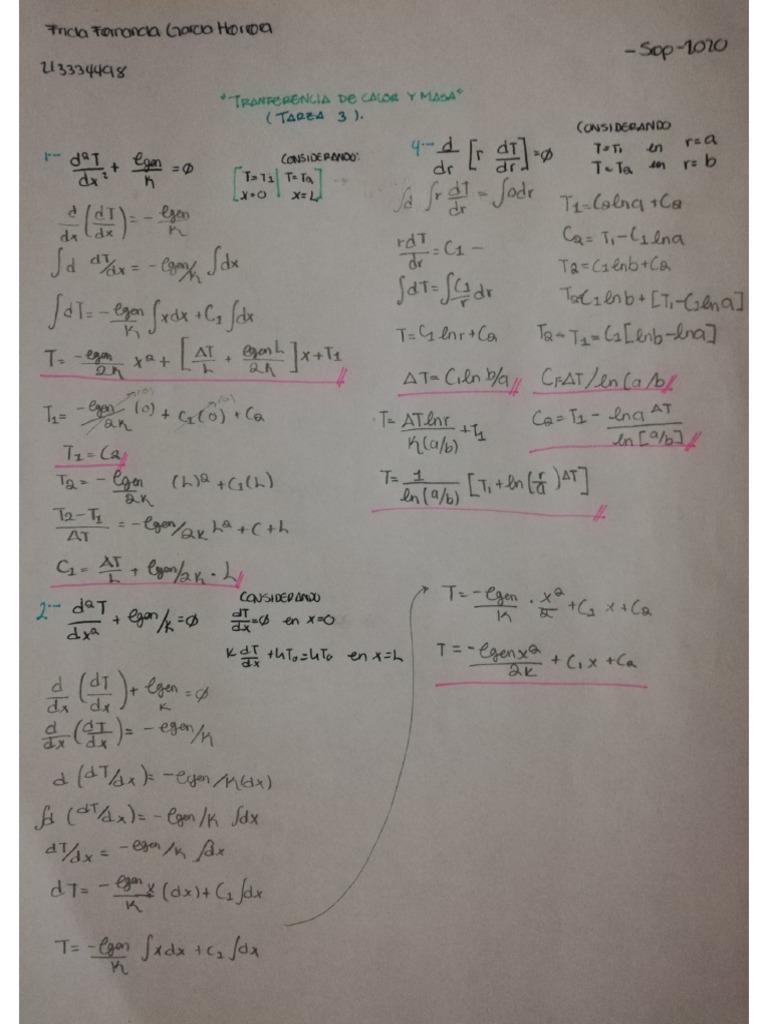 Garcia Herrera
- Sep - 2020
213334498
"TRANFERENCIA DE CALOR Y MASA"
(TAREA 3).
1.- d²T/dx² + egen/K = 0
CONSIDERANDO:
[T=T1 | T=T2]
[x=0 | x=L]
d/dx (dT/dx) = - egen/K
∫d dT/dx = - egen/K ∫dx
∫dT = - egen/K ∫xdx + C1 ∫dx
T = - egen/2K x² + [ΔT/L + egen L/2K] x + T1
T1 = - egen/2K (0) + C1 (0) + C2
T1 = C2
T2 = - egen/2K (L)² + C1 (L)
T2-T1/ΔT = - egen/2K L² + C + L
C1 = ΔT/L + egen/2K · L
2.- d²T/dx² + egen/K = 0
CONSIDERANDO
dT/dx = 0 en x=0
K dT/dx + hT0 = hT0 en x=L
d/dx (dT/dx) + egen/K = 0
d/dx (dT/dx) = - egen/K
d (dT/dx) = - egen/K (dx)
∫d (dT/dx) = - egen/K ∫dx
dT/dx = - egen/K ∫dx
dT = - egen x/K (dx) + C1 ∫dx
T = - egen/K ∫xdx + C2 ∫dx
T = - egen/K · x²/2 + C1 x + C2
T = - egen x²/2K + C1 x + C2
4.- d/dr [r dT/dr] = 0
CONSIDERANDO
T=T1 en r=a
T=T2 en r=b
∫d ∫r dT/dr = ∫0dr
rdT/dr = C1 -
∫dT = ∫C1/r dr
T = C1 lnr + C2
ΔT = C1 ln b/a
T = ΔT lnr/K(a/b) + T1
T = 1/ln(a/b) [T1 + ln(r/a) ΔT]
T1 = C1 lna + C2
C2 = T1 - C1 lna
T2 = C1 lnb + C2
T2 = C1 lnb + [T1 - C1 lna]
T2 - T1 = C1 [lnb - lna]
C1 = ΔT/ln(a/b)
C2 = T1 - lna ΔT/ln[a/b]